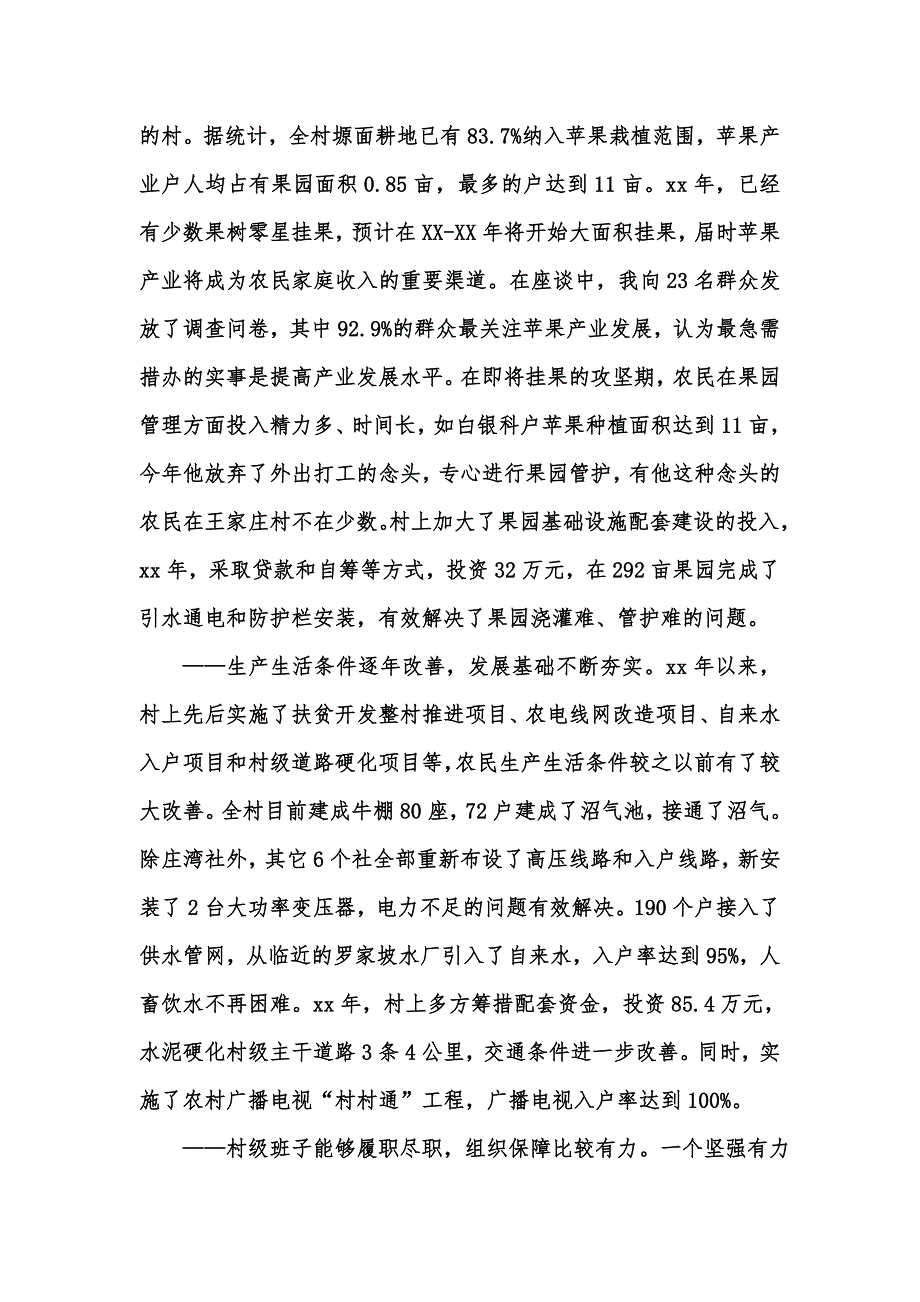 的村。据统计，全村塬面耕地已有 83.7%纳入苹果栽植范围，苹果产
业户人均占有果园面积 0.85 亩，最多的户达到 11 亩。xx 年，已经
有少数果树零星挂果，预计在 XX-XX 年将开始大面积挂果，届时苹果
产业将成为农民家庭收入的重要渠道。在座谈中，我向 23 名群众发
放了调查问卷，其中 92.9%的群众最关注苹果产业发展，认为最急需
措办的实事是提高产业发展水平。在即将挂果的攻坚期，农民在果园
管理方面投入精力多、时间长，如白银科户苹果种植面积达到 11 亩，
今年他放弃了外出打工的念头，专心进行果园管护，有他这种念头的
农民在王家庄村不在少数。村上加大了果园基础设施配套建设的投入，
xx 年，采取贷款和自筹等方式，投资 32 万元，在 292 亩果园完成了
引水通电和防护栏安装，有效解决了果园浇灌难、管护难的问题。
——生产生活条件逐年改善，发展基础不断夯实。xx 年以来，
村上先后实施了扶贫开发整村推进项目、农电线网改造项目、自来水
入户项目和村级道路硬化项目等，农民生产生活条件较之以前有了较
大改善。全村目前建成牛棚 80 座，72 户建成了沼气池，接通了沼气。
除庄湾社外，其它 6 个社全部重新布设了高压线路和入户线路，新安
装了 2 台大功率变压器，电力不足的问题有效解决。190 个户接入了
供水管网，从临近的罗家坡水厂引入了自来水，入户率达到 95%，人
畜饮水不再困难。xx 年，村上多方筹措配套资金，投资 85.4 万元，
水泥硬化村级主干道路 3 条 4 公里，交通条件进一步改善。同时，实
施了农村广播电视“村村通”工程，广播电视入户率达到 100%。
——村级班子能够履职尽职，组织保障比较有力。一个坚强有力